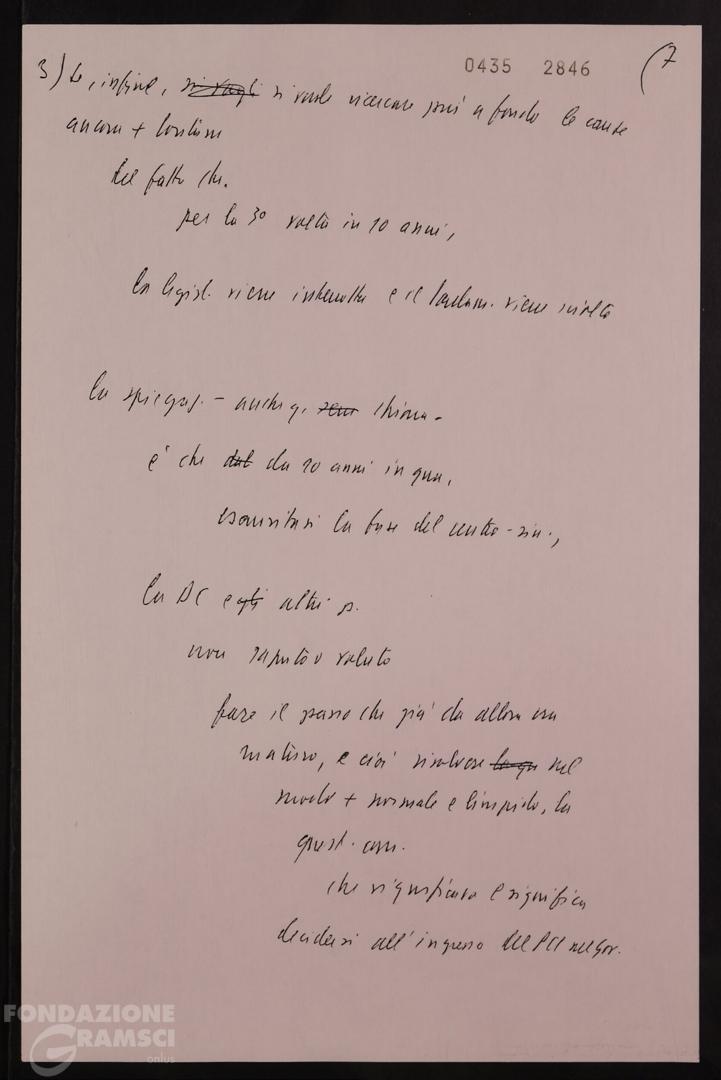 0435 2846
(7
3) Se, infine, si vogli si vuole ricercare più a fondo le cause
ancora + lontane
del fatto che.
per la 3° volta in 10 anni,
la legisl. viene interrotta e il Parlam. viene sciolto
la spiegaz. - anche q. chiara -
è che dal da 10 anni in qua,
esauritasi la fase del centro-sin.,
la DC e gli altri p.
non saputo o voluto
fare il passo che già da allora era
maturo, e cioè risolvere nel
modo + normale e limpido, la
quest. com.
che significava e significa
decidersi all'ingresso del PCI nel gov.
FONDAZIONE
GRAMSCI
onlus